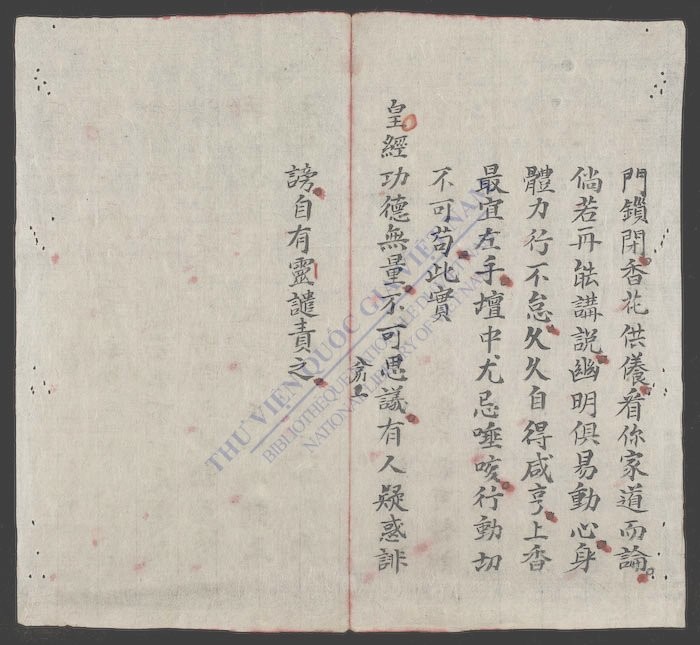 門鎖閉香花供儀看你家道而論
倘若再能講説幽明俱易動心身
體力行不怠久久自得咸亨上香
最宜左手壇中尤忌唾咳行動切
不可苟此實
皇經功德無量不可思議有人疑惑誹
謗自有靈譴責之
THƯ VIỆN QUỐC GIA VIỆT NAM
BIBLIOTHEQUE NATIONALE DU VIETNAM
NATIONAL LIBRARY OF VIETNAM